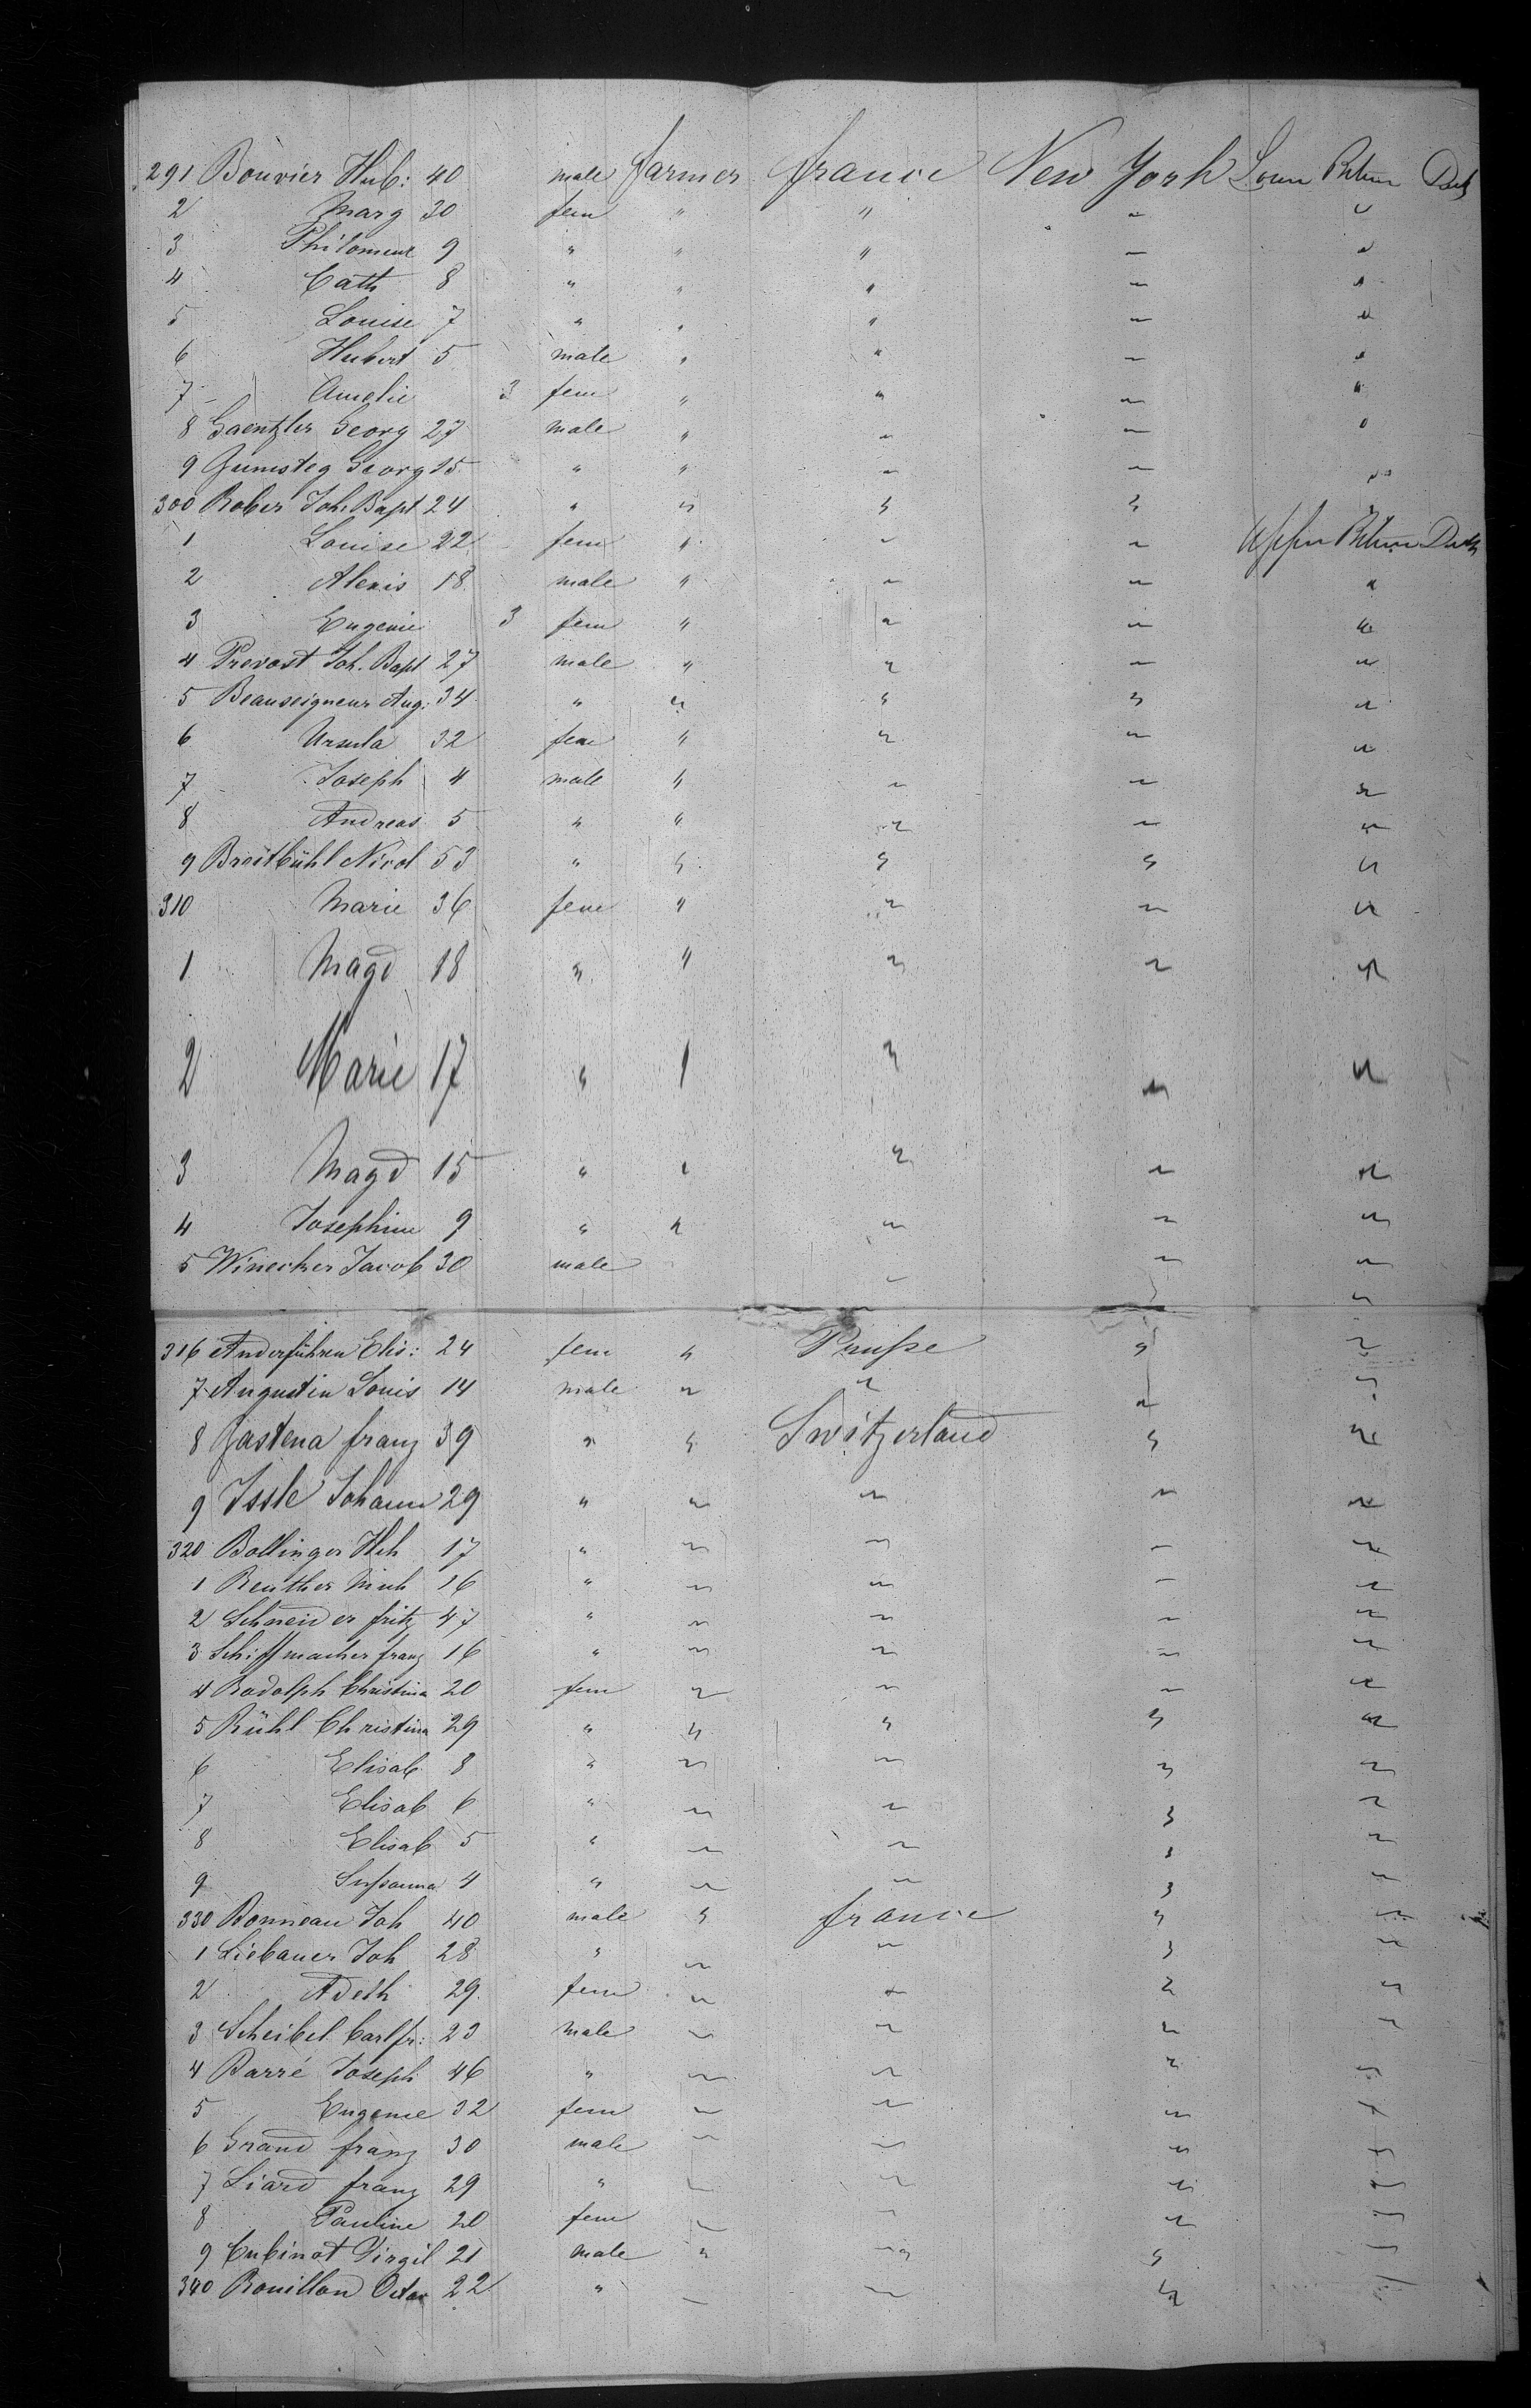 291 Bouvier Hub: 40 male farmer france New York Lower Betwn Deck
2 Marg 30 fem " " " "
3 Philomene 9 " " " " "
4 Cath 8 " " " " "
5 Louise 7 " " " " "
6 Hubert 5 male " " " "
7 Amelie 3 fem " " " "
8 Gaentzler Georg 27 male " " " "
9 Gumsteg Georg 15 " " " " "
300 Rober Joh. Bapt 24 " " " " "
1 Louise 22 fem " " " Upper Betwn Deck
2 Alexis 18 male " " " "
3 Eugenie 3 fem " " " "
4 Prevost Joh. Bapt 27 male " " " "
5 Beauseigneur Aug: 34 " " " " "
6 Ursula 32 fem " " " "
7 Joseph 4 male " " " "
8 Andreas 5 " " " " "
9 Breitbühl Nicol 53 " " " " "
310 Marie 36 fem " " " "
1 Magd 18 " " " " "
2 Marie 17 " " " " "
3 Magd 15 " " " " "
4 Josephine 9 " " " " "
5 Winecker Jacob 30 male " " "
316 Anderführen Elis: 24 fem " Prusse " "
7 Augustin Louis 14 male " " " "
8 Gastena franz 39 " " Switzerland " "
9 Issle Johann 29 " " " " "
320 Bollinger Hch 17 " " " " "
1 Reuther Mich 16 " " " " "
2 Schneider fritz 47 " " " " "
3 Schiffmacher franz 16 " " " " "
4 Rodolph Christina 20 fem " " " "
5 Rühl Christina 29 " " " " "
6 Elisab 8 " " " " "
7 Elisab 6 " " " " "
8 Elisab 5 " " " " "
9 Sußanna 4 " " " " "
330 Bonneau Joh 40 male " france " "
1 Liebauer Joh 28 " " " " "
2 Adelh 29 fem " " " "
3 Scheibel Carl fr: 23 male " " " "
4 Barré Joseph 46 " " " " "
5 Eugenie 32 fem " " " "
6 Grand franz 30 male " " " "
7 Liard franz 29 " " " " "
8 Pauline 20 fem " " " "
9 Cubinot Virgil 21 male " " " "
340 Rouillon Octav 22 " " " " "